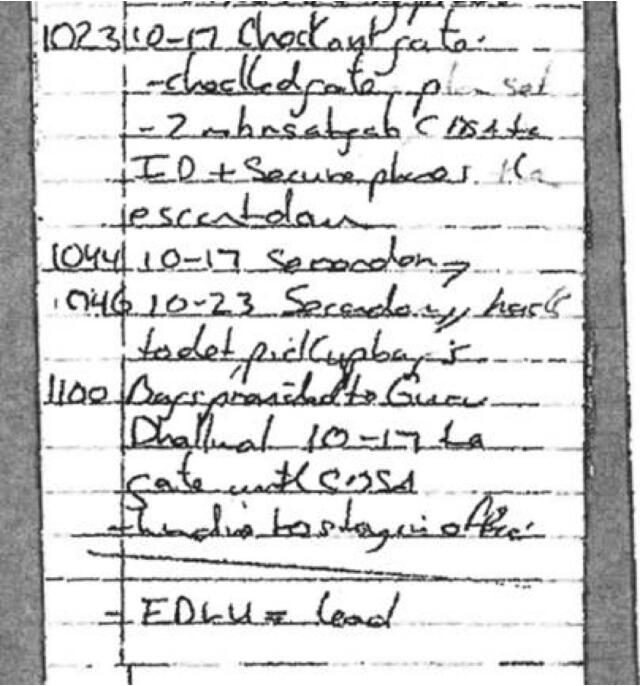 1023 10-17 Check out gate.
- checked gate, plan set
- 2 mbrs CBSA to
ID + Secure phones
escort down
1044 10-17 Secondary
1046 10-23 Secondary, heads
to det, pick up bags
1100 Bags provided to Guru
Dhaliwal 10-17 to
gate with CBSA
- to stay in office.
- EDLU = lead